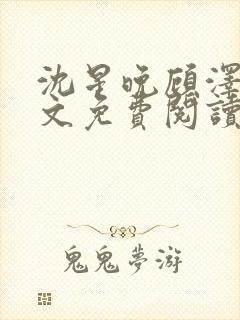 沈星晚顾澤
文免費閱讀
鬼鬼夢游